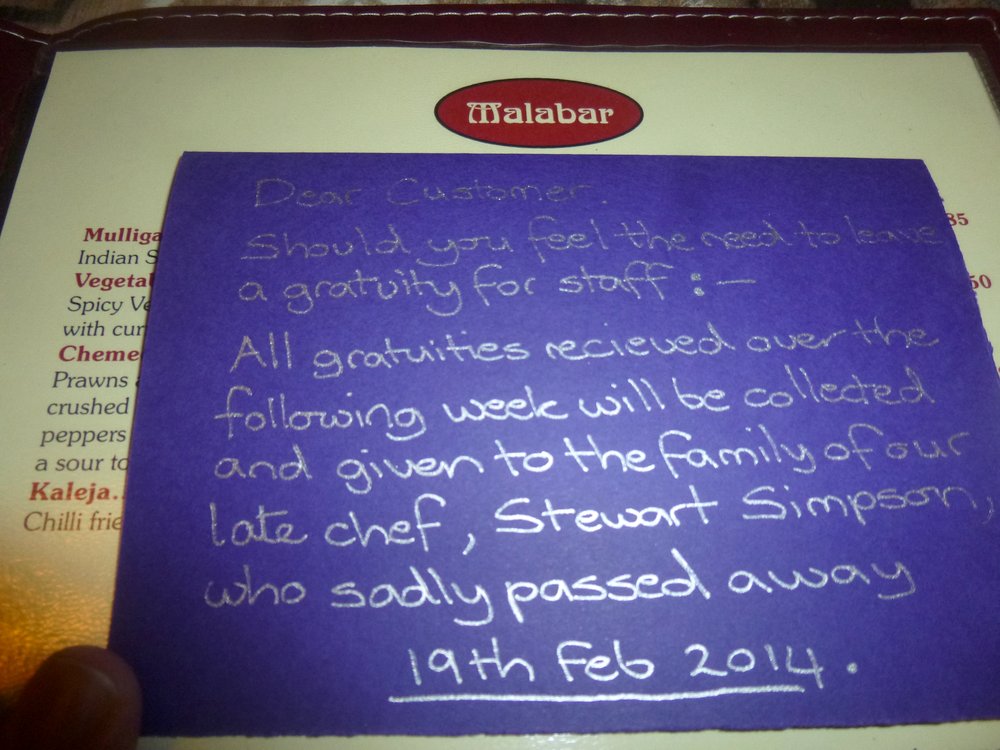 Malabar
Dear Customer.
Should you feel the need to leave
a gratuity for staff :-
All gratuities recieved over the
following week will be collected
and given to the family of our
late chef, Stewart Simpson,
who sadly passed away
19th Feb 2014.
Mulliga
Indian S
Vegetab
Spicy Ve
with cur
Cheme
Prawns a
crushed
peppers
a sour to
Kaleja..
Chilli frie
85
50